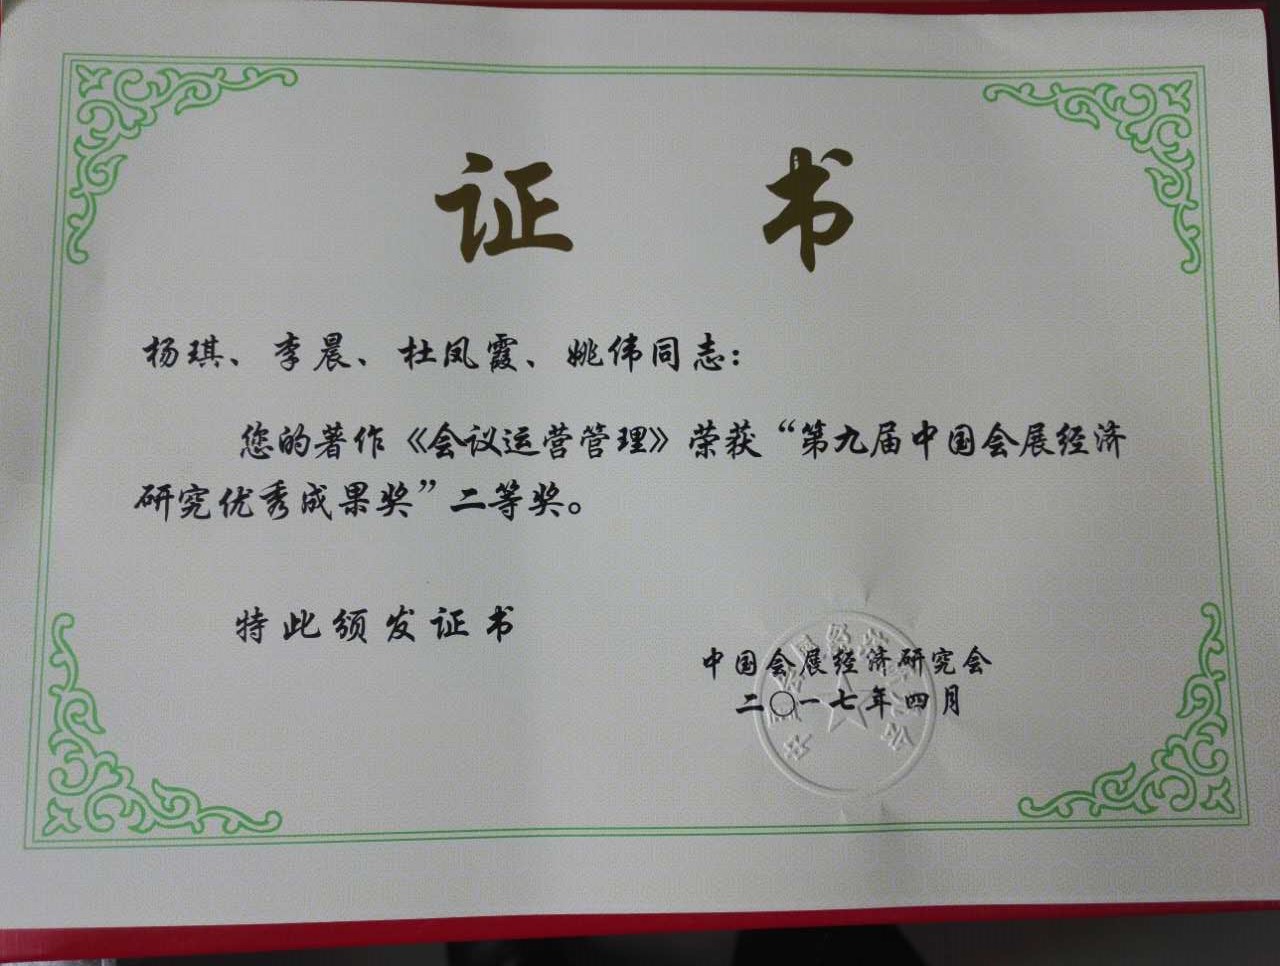 证书
杨琪、李晨、杜凤霞、姚伟同志：
您的著作《会议运营管理》荣获“第九届中国会展经济
研究优秀成果奖”二等奖。
特此颁发证书
中国会展经济研究会
二〇一七年四月